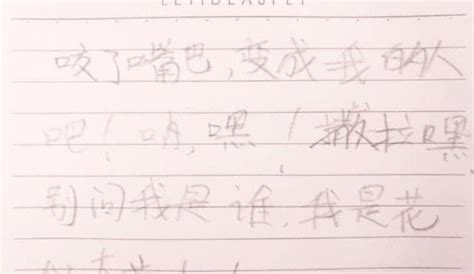 咬了嘴巴,变成我的人
吧!哨,嘿!撒拉嘿
别问我是谁,我是花